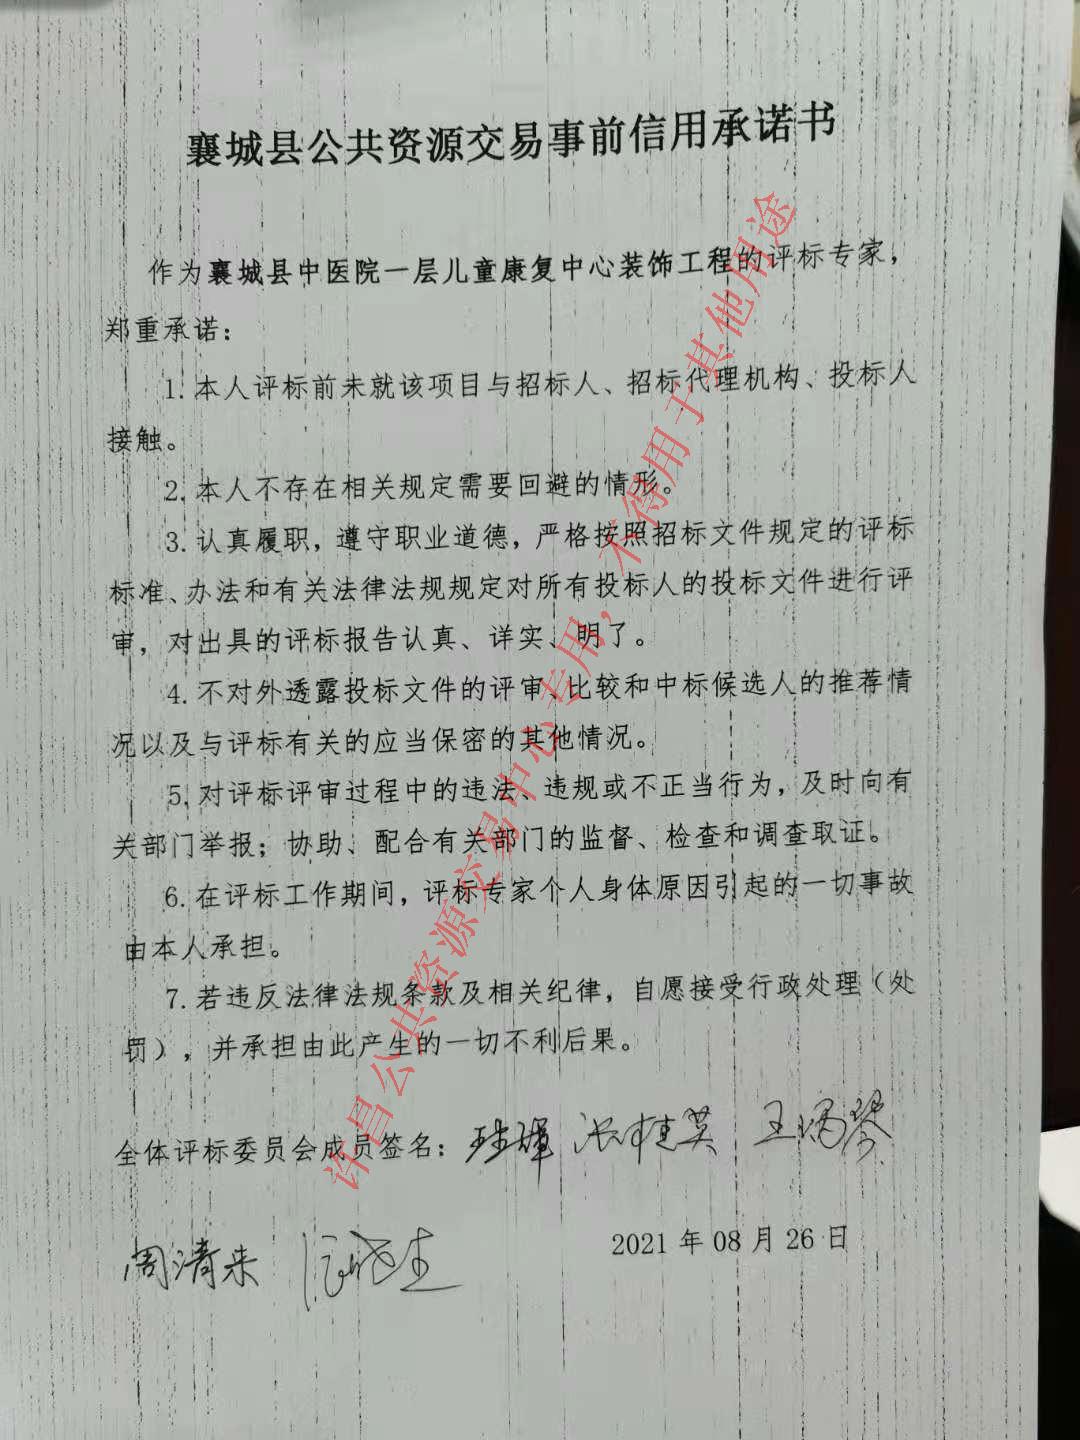 襄城县公共资源交易事前信用承诺书
作为襄城县中医院一层儿童康复中心装饰工程的评标专家，
郑重承诺：
1.本人评标前未就该项目与招标人、招标代理机构、投标人
接触。
2.本人不存在相关规定需要回避的情形。
3.认真履职，遵守职业道德，严格按照招标文件规定的评标
标准、办法和有关法律法规规定对所有投标人的投标文件进行评
审，对出具的评标报告认真、详实、明了。
4.不对外透露投标文件的评审、比较和中标候选人的推荐情
况以及与评标有关的应当保密的其他情况。
5.对评标评审过程中的违法、违规或不正当行为，及时向有
关部门举报；协助、配合有关部门的监督、检查和调查取证。
6.在评标工作期间，评标专家个人身体原因引起的一切事故
由本人承担。
7.若违反法律法规条款及相关纪律，自愿接受行政处理（处
罚），并承担由此产生的一切不利后果。
全体评标委员会成员签名： 张桂英
周清来
2021年08月26日
许昌公共资源交易中心专用，不得用于其他用途